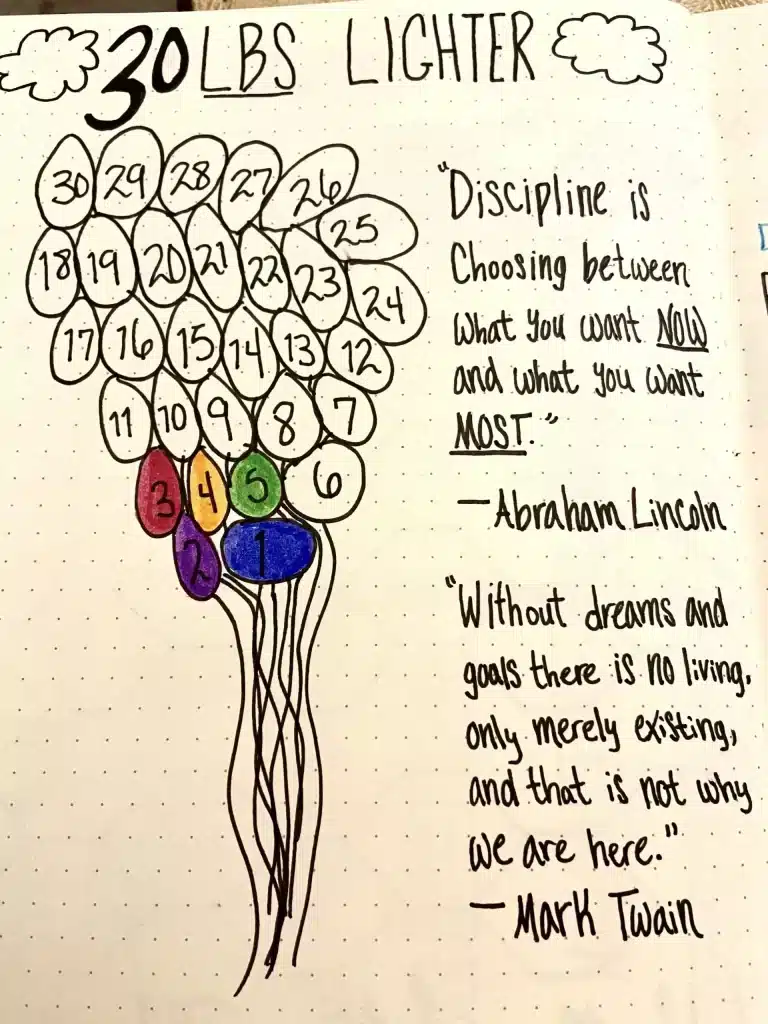 30 LBS LIGHTER
30 29 28 27 26
25
18 19 20 21 22 23 24
17 16 15 14 13 12
11 10 9 8 7
3 4 5 6
2 1
"Discipline is
Choosing between
what you want NOW
and what you want
MOST."
—Abraham Lincoln
"Without dreams and
goals there is no living,
only merely existing,
and that is not why
we are here."
—Mark Twain